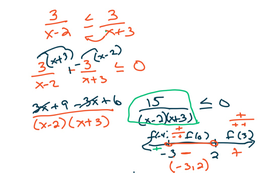 3/(x-2) ≤ 3/(x+3)
3(x+3)/(x-2) - 3(x-2)/(x+3) ≤ 0
(3x+9-3x+6)/((x-2)(x+3)) 15/((x-2)(x+3)) ≤ 0
f(0) f(3)
+ -3 - 2 +
(-3,2)